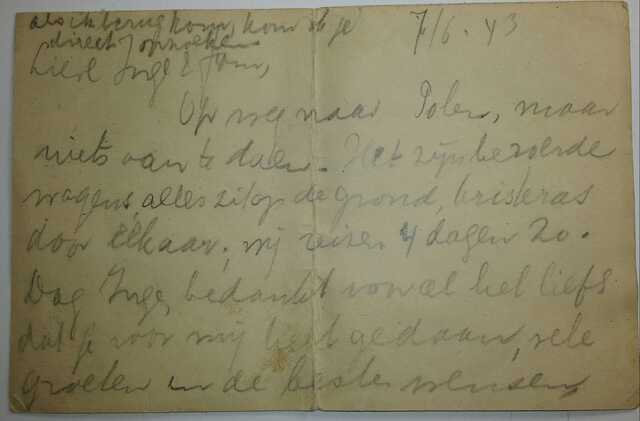 als ik terug kom, kom ik je 7/6 . 43
direct opzoeken
Lieve Inge & Tom,
Op weg naar Polen, maar
niets aan te doen. Het zijn
wagens, alles zit op de grond,
door elkaar, wij reizen 4 dagen zo.
Dag Inge, bedankt voor al het liefs
dat je voor mij hebt gedaan, vele
groeten en de beste wensen,